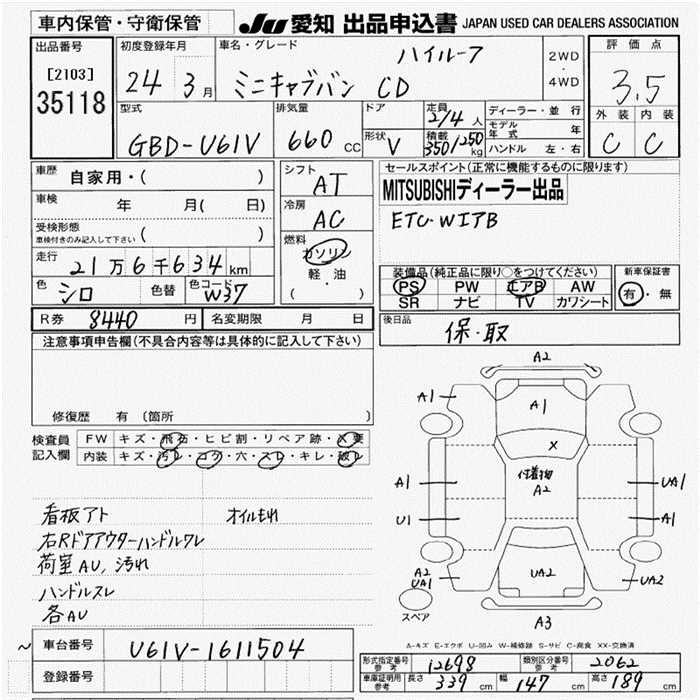 車内保管・守衛保管
JU 愛知 出品申込書 JAPAN USED CAR DEALERS ASSOCIATION
出品番号
[2103]
35118
初度登録年月
24 3月
車名・グレード
ハイルーフ
ミニキャブバン CD
2WD
・
4WD
評価点
3.5
外装 内装
C C
型式
GBD-U61V
排気量
660 CC
ドア
形状 V
定員
2/4 人
積載
350/250 kg
ディーラー・並行
モデル年式 年
ハンドル 左・右
車歴
自家用・( )
車検
年 月( 日)
受検形態
車検付きのみ記入して下さい ( )
走行
21万6千634km
色 シロ 色替 色コード W37
シフト
AT
冷房
AC
燃料
ガソリン
軽・油
( )
セールスポイント(正常に機能するものに限ります)
MITSUBISHIディーラー出品
ETC・WエアB
装備品(純正品に限り○をつけてください)
PS PW エアB AW
SR ナビ TV カワシート
新車保証書
有・無
R券 8440 円 名変期限 月 日
後日品
保・取
注意事項申告欄(不具合内容等は具体的に記入して下さい)
修復歴 有 (箇所 )
検査員
記入欄
FW キズ・飛石・ヒビ割・リペア跡・X要
内装 キズ・汚レ・コゲ・穴・スレ・キレ・破レ
看板アト オイルもれ
右Rドアアウターハンドルワレ
荷室AU,汚れ
ハンドルスレ
各AU
A2
A1
A1
X
付着物
A2
A1
UA1
U1
A1
A2
UA1
UA2
UA2
A3
スペア
A-キズ E-エクボ U-凹み W-補修跡 S-サビ C-腐食 XX-交換済
~ 車台番号 U61V-1611504
登録番号
形式指定番号 参考 12698 類別区分番号 参考 2062
車庫証明用 参考 長さ 339 cm 幅 147 cm 高さ 189 cm